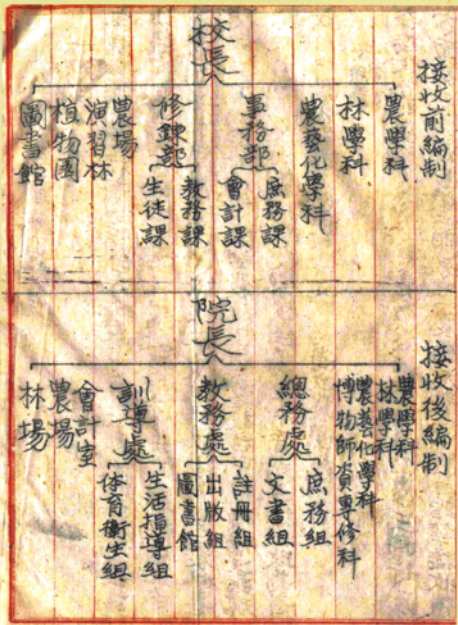 接收前編制
校長
農學科
林學科
農藝化學科
事務部
庶務課
會計課
修鍊部
教務課
生徒課
農場
演習林
植物園
圖書館
接收後編制
院長
農學科
林學科
農藝化學科
博物師資專修科
總務處
庶務組
文書組
教務處
註冊組
出版組
圖書館
訓導處
生活指導組
体育衛生組
會計室
農場
林場